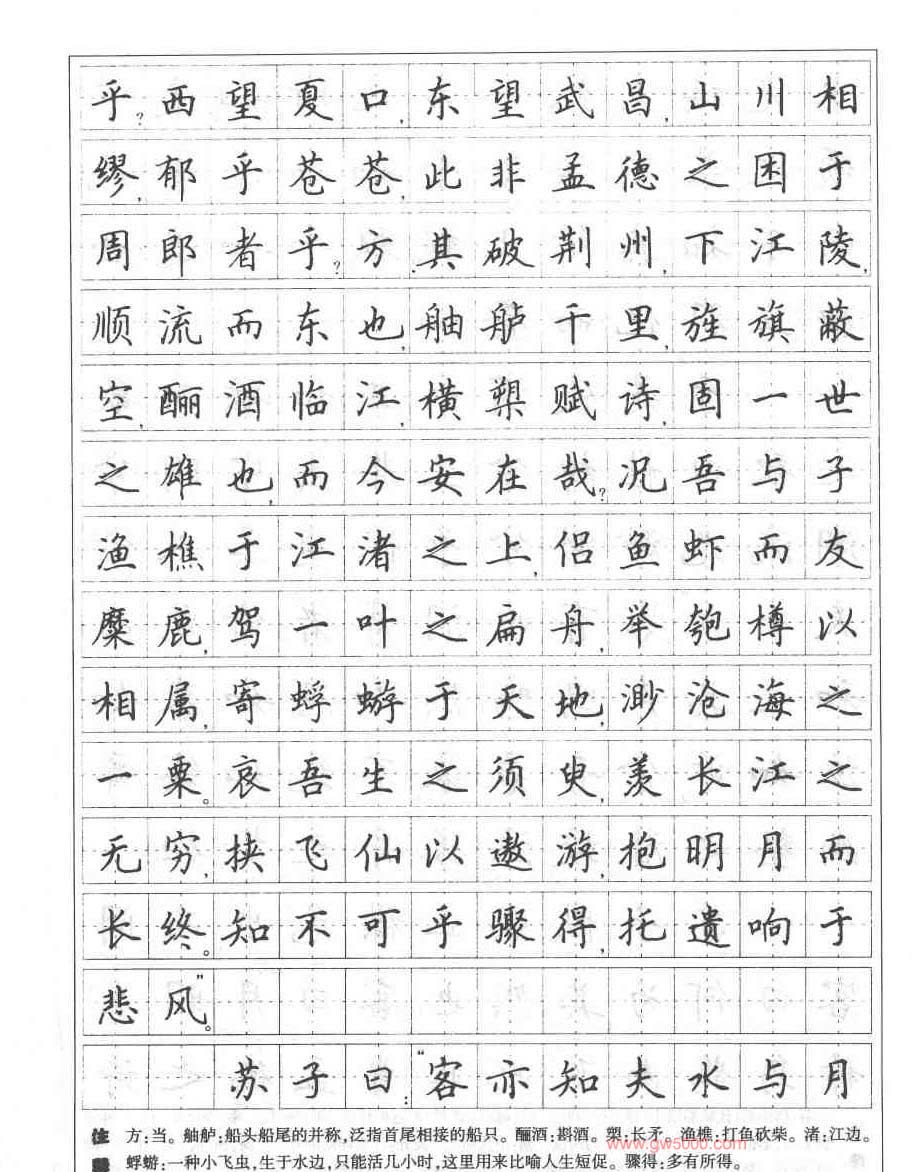 乎?西望夏口,东望武昌,山川相
缪,郁乎苍苍,此非孟德之困于
周郎者乎?方其破荆州,下江陵,
顺流而东也,舳舻千里,旌旗蔽
空,酾酒临江,横槊赋诗,固一世
之雄也,而今安在哉?况吾与子
渔樵于江渚之上,侣鱼虾而友
麋鹿,驾一叶之扁舟,举匏樽以
相属,寄蜉蝣于天地,渺沧海之
一粟。哀吾生之须臾,羡长江之
无穷,挟飞仙以遨游,抱明月而
长终。知不可乎骤得,托遗响于
悲风。”
苏子曰:“客亦知夫水与月
注 方:当。舳舻:船头船尾的并称,泛指首尾相接的船只。酾酒:斟酒。槊:长矛。渔樵:打鱼砍柴。渚:江边。
蜉蝣:一种小飞虫,生于水边,只能活几小时,这里用来比喻人生短促。骤得:多有所得。
www.gw5000.com